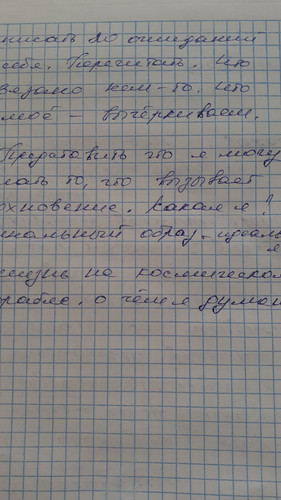 писать 20 ожиданий
себя. Перечитать. Что
вязано кем-то. Что
моё – вычёркиваем.
Представить что я могу
лать то, что вызывает
охновение. Какая я?
икальный образ, идеаль
я
жизнь на космическом
рабле. о чём я думаю